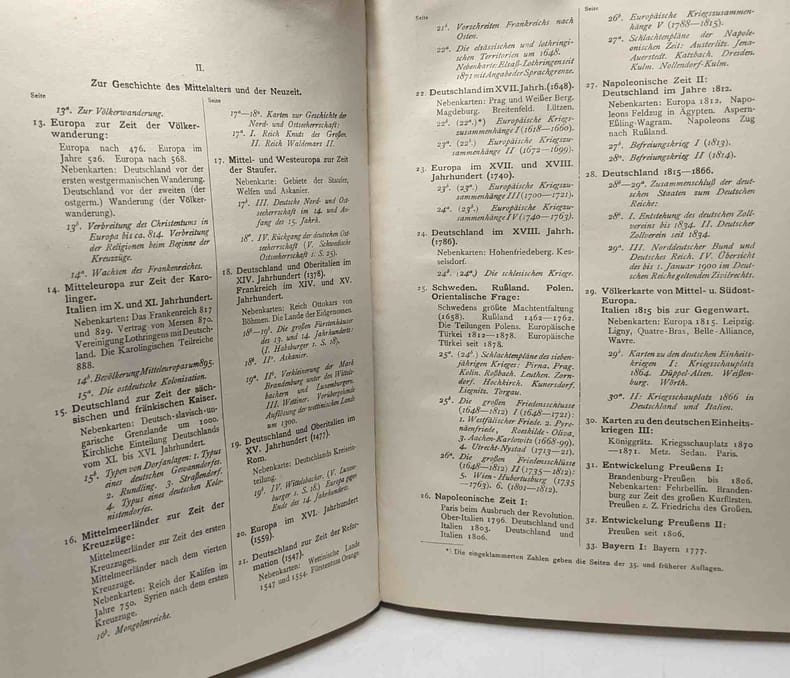 II.
Zur Geschichte des Mittelalters und der Neuzeit.
Seite
13ª. Zur Völkerwanderung.
13. Europa zur Zeit der Völker-
wanderung:
Europa nach 476. Europa im
Jahre 526. Europa nach 568.
Nebenkarten: Deutschland vor der
ersten westgermanischen Wanderung.
Deutschland vor der zweiten (der
ostgerm.) Wanderung (der Völker-
wanderung).
13ᵇ. Verbreitung des Christentums in
Europa bis ca. 814. Verbreitung
der Religionen beim Beginne der
Kreuzzüge.
14ª. Wachsen des Frankenreiches.
14. Mitteleuropa zur Zeit der Karo-
linger.
Italien im X. und XI. Jahrhundert.
Nebenkarten: Das Frankenreich 817
und 829. Vertrag von Mersen 870.
Vereinigung Lothringens mit Deutsch-
land. Die Karolingischen Teilreiche
888.
14ᵇ. Bevölkerung Mitteleuropas um 895.
15ª. Die ostdeutsche Kolonisation.
15. Deutschland zur Zeit der säch-
sischen und fränkischen Kaiser.
Nebenkarten: Deutsch-slavisch-un-
garische Grenzlande um 1000.
Kirchliche Einteilung Deutschlands
vom XI. bis XVI. Jahrhundert.
15ᵇ. Typen von Dorfanlagen: 1. Typus
eines deutschen Gewanndorfes.
2. Rundling. 3. Straßendorf.
4. Typus eines deutschen Kolo-
nistendorfes.
16. Mittelmeerländer zur Zeit der
Kreuzzüge:
Mittelmeerländer zur Zeit des ersten
Kreuzzuges.
Mittelmeerländer nach dem vierten
Kreuzzuge.
Nebenkarten: Reich der Kalifen im
Jahre 750. Syrien nach dem ersten
Kreuzzuge.
16ᵇ. Mongolenreiche.
Seite
17ª—18ª. Karten zur Geschichte der
Nord- und Ostseeherrschaft:
17ª. I. Reich Knuts des Großen.
II. Reich Waldemars II.
17. Mittel- und Westeuropa zur Zeit
der Staufer.
Nebenkarte: Gebiete der Staufer,
Welfen und Askanier.
17ᵇ. III. Deutsche Nord- und Ost-
seeherrschaft im 14. und An-
fang des 15. Jahrh.
18ª. IV. Rückgang der deutschen Ost-
seeherrschaft (V. Schwedische
Ostseeherrschaft s. S. 25).
18. Deutschland und Oberitalien im
XIV. Jahrhundert (1378).
Frankreich im XIV. und XV.
Jahrhundert.
Nebenkarten: Reich Ottokars von
Böhmen. Die Lande der Eidgenossen.
18ᵇ—19ᵇ. Die großen Fürstenhäuser
des 13. und 14. Jahrhunderts:
(I. Habsburger s. S. 18).
18ᵇ. IIª. Askanier.
19ª. IIᵇ. Verkleinerung der Mark
Brandenburg unter den Wittels-
bachern und Luxemburgern.
III. Wettiner. Vorübergehende
Auflösung der wettinischen Lande
um 1300.
19. Deutschland und Oberitalien im
XV. Jahrhundert (1477).
Rom.
Nebenkarte: Deutschlands Kreisein-
teilung.
19ᵇ. IV. Wittelsbacher. (V. Luxem-
burger s. S. 18.) Europa gegen
Ende des 14. Jahrhunderts.
20. Europa im XVI. Jahrhundert
(1559).
21. Deutschland zur Zeit der Refor-
mation (1547).
Nebenkarten: Wettinische Lande
1547 und 1554. Fürstentum Orange.
Seite
21ᵇ. Vorschreiten Frankreichs nach
Osten.
22ª. Die elsässischen und lothringi-
schen Territorien um 1648.
Nebenkarte: Elsaß-Lothringen seit
1871 mit Angabe der Sprachgrenze.
22. Deutschland im XVII. Jahrh. (1648).
Nebenkarten: Prag und Weißer Berg.
Magdeburg. Breitenfeld. Lützen.
22ᵇ. (22ª.)*) Europäische Kriegs-
zusammenhänge I (1618—1660).
23ª. (22ᵇ.) Europäische Kriegszu-
sammenhänge II (1672—1699).
23. Europa im XVII. und XVIII.
Jahrhundert (1740).
23ᵇ. (23ª.) Europäische Kriegszu-
sammenhänge III (1700—1721).
24ª. (23ᵇ.) Europäische Kriegszu-
sammenhänge IV (1740—1763).
24. Deutschland im XVIII. Jahrh.
(1786).
Nebenkarten: Hohenfriedeberg. Kes-
selsdorf.
24ᵇ. (24ª.) Die schlesischen Kriege.
25. Schweden. Rußland. Polen.
Orientalische Frage:
Schwedens größte Machtentfaltung
(1658). Rußland 1462—1762.
Die Teilungen Polens. Europäische
Türkei 1812—1878. Europäische
Türkei seit 1878.
25ª. (24ᵇ.) Schlachtenpläne des sieben-
jährigen Krieges: Pirna, Prag.
Kolin. Roßbach. Leuthen. Zorn-
dorf. Hochkirch. Kunersdorf.
Liegnitz. Torgau.
25ᵇ. Die großen Friedensschlüsse
(1648—1812) I (1648—1721):
1. Westfälischer Friede. 2. Pyre-
näenfriede, Roeskilde-Oliva,
3. Aachen-Karlowitz (1668-99).
4. Utrecht-Nystad (1713—21).
26ª. Die großen Friedensschlüsse
(1648—1812) II (1735—1812):
5. Wien-Hubertusburg (1735
—1763). 6. (1801—1812).
26. Napoleonische Zeit I:
Paris beim Ausbruch der Revolution.
Ober-Italien 1796. Deutschland und
Italien 1803. Deutschland und
Italien 1806.
Seite
26ᵇ. Europäische Kriegszusammen-
hänge V (1788—1815).
27ª. Schlachtenpläne der Napole-
onischen Zeit: Austerlitz. Jena-
Auerstedt. Katzbach. Dresden.
Kulm. Nollendorf-Kulm.
27. Napoleonische Zeit II:
Deutschland im Jahre 1812.
Nebenkarten: Europa 1812. Napo-
leons Feldzug in Ägypten. Aspern-
Eßling-Wagram. Napoleons Zug
nach Rußland.
27ᵇ. Befreiungskrieg I (1813).
28ª. Befreiungskrieg II (1814).
28. Deutschland 1815—1866.
28ᵇ—29ª. Zusammenschluß der deut-
schen Staaten zum Deutschen
Reiche:
28ᵇ. I. Entstehung des deutschen Zoll-
vereins bis 1834. II. Deutscher
Zollverein seit 1834.
29ª. III. Norddeutscher Bund und
Deutsches Reich. IV. Übersicht
des bis 1. Januar 1900 im Deut-
schen Reiche geltenden Zivilrechts.
29. Völkerkarte von Mittel- u. Südost-
Europa.
Italien 1815 bis zur Gegenwart.
Nebenkarten: Europa 1815. Leipzig.
Ligny, Quatre-Bras, Belle-Alliance,
Wavre.
29ᵇ. Karten zu den deutschen Einheits-
kriegen I: Kriegsschauplatz
1864. Düppel-Alsen. Weißen-
burg. Wörth.
30ª. II: Kriegsschauplatz 1866 in
Deutschland und Italien.
30. Karten zu den deutschen Einheits-
kriegen III:
Königgrätz. Kriegsschauplatz 1870
—1871. Metz. Sedan. Paris.
31. Entwickelung Preußens I:
Brandenburg-Preußen bis 1806.
Nebenkarten: Fehrbellin. Branden-
burg zur Zeit des großen Kurfürsten.
Preußen z. Z. Friedrichs des Großen.
32. Entwickelung Preußens II:
Preußen seit 1806.
33. Bayern I: Bayern 1777.
*) Die eingeklammerten Zahlen geben die Seiten der 35. und früherer Auflagen.